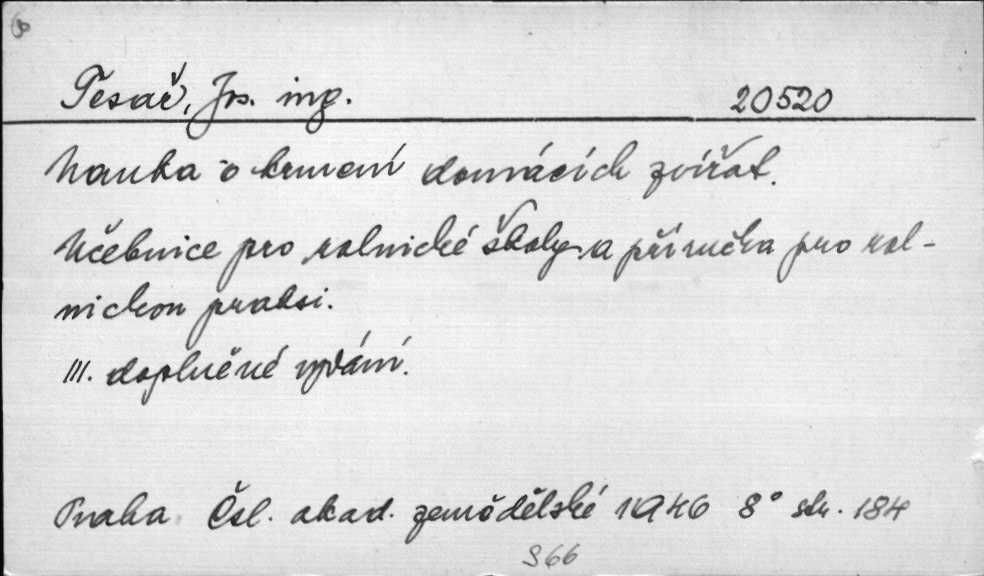 Tesař, Jos. ing. 20520
Nauka o krmení domácích zvířat.
Učebnice pro rolnické školy a příručka pro rol-
nickou praksi.
III. doplněné vydání.
Praha Čsl. akad. zemědělské 1946 8° str. 184
S66